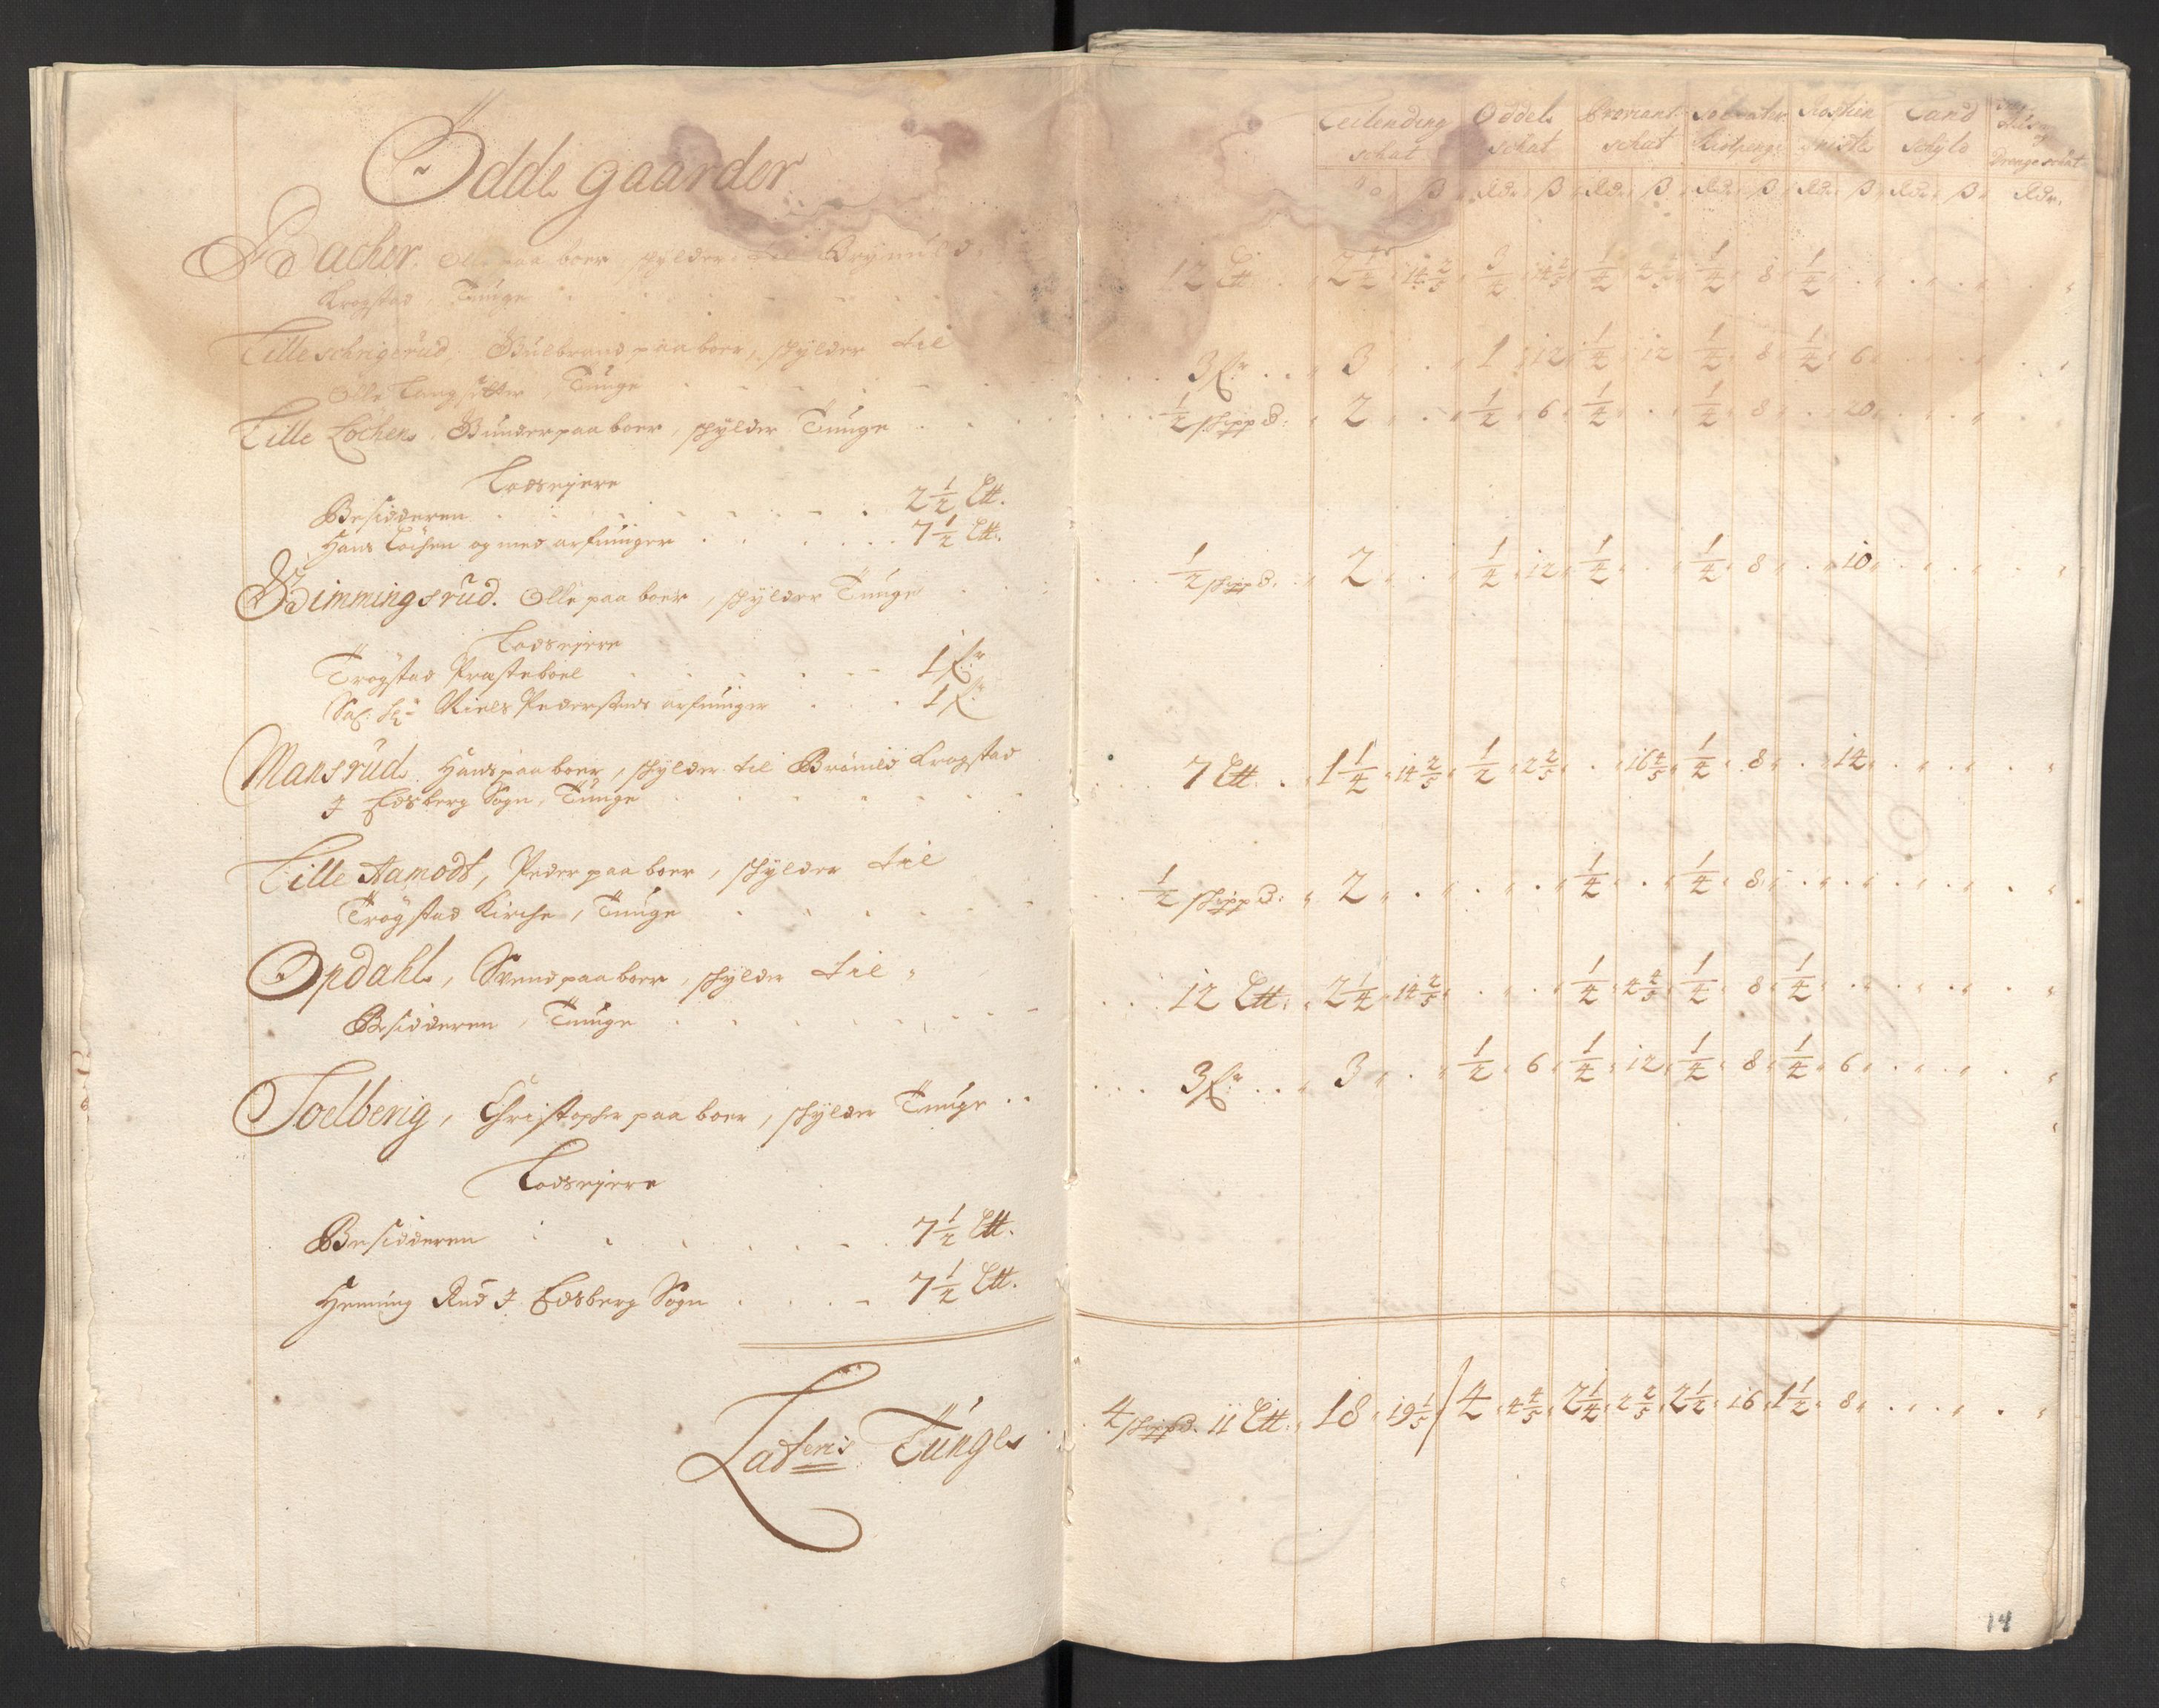 Ödde gaarder
Bacher. Olle paa boer, skylder til Brÿnnild
Krogstad Tunge
Lille schrigerud, Gulbrand paa boer, skylder til
Olle Langsetter, Tunge
Lille Löchen, Gunder paa boer, skylder Tunge
Lodseyere
Besidderen 2 1/2 Ltt.
Hans Löchen og med arfuinger 7 1/2 Ltt.
Gimmingsrud. Olle paa boer, skylder Tunge
Lodseyere
Trögstad Præsteboel 1 f:r
Sal: Hr Niels Pedersens arfuinger 1 f:r
Mansrud. Hans paa boer, skylder til Brönild Krogstad
I Edsberg Sogn, Tunge
Lille Aamodt, Peder paa boer, skylder til
Trögstad Kirche, Tunge
Opdahl, Svend paa boer, skylder til
Besidderen, Tunge
Solberig, Christopher paa boer, skylder Tunge
Lodseyere
Besidderen 7 1/2 Ltt.
Henning Rud I Edsberg Sogn 7 1/2 Ltt.
Lateris Tunge
Leilending schat Oddels schat Proviant schat Soldater Rosthien Land Schyld Drenge schat
ß Rdr. ß Rdr. ß Rdr. ß Rdr. ß Rdr. ß Rdr.
12 Ltt. 2 1/4 14 2/5 3/4 14 2/5 1/4 4 4/5 1/4 8 1/4
3 f:r 3 1 12 1/4 12 1/4 8 1/4 6
1/2 skippd: 2 1/2 6 1/4 1/4 8 20
1/2 skippd: 2 1/4 12 1/4 1/4 8 10
7 Ltt. 1 1/4 14 2/5 1/2 2 2/5 16 4/5 1/4 8 14
1/2 skippd: 2 1/4 1/4 8
12 Ltt: 2 1/4 14 2/5 1/4 4 4/5 1/4 8 1/4
3 f:r 3 1/2 6 1/4 12 1/4 8 1/4 6
4 skippd. 11 Ltt: 18 19 1/5 4 4 4/5 2 1/4 2 2/5 2 1/4 16 1 1/2 8
14